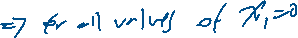 => for all values of x₁=0